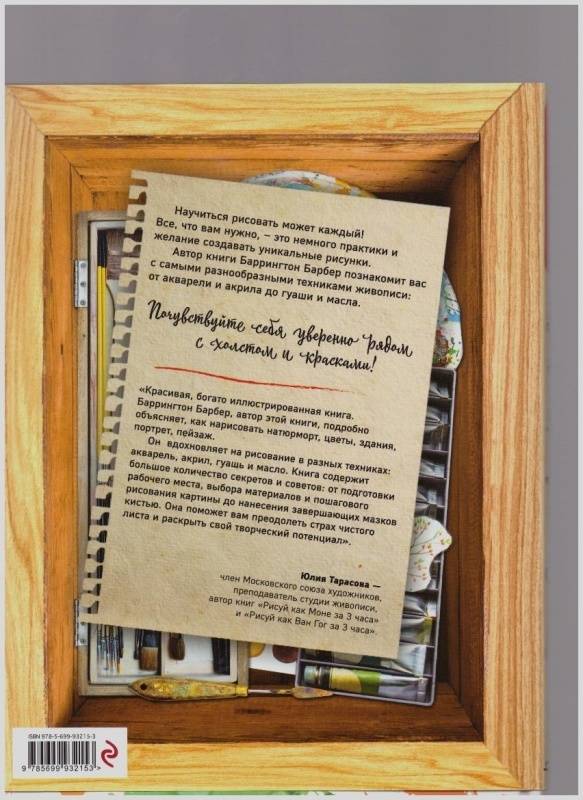 Научиться рисовать может каждый!
Все, что вам нужно, – это немного практики и
желание создавать уникальные рисунки.
Автор книги Баррингтон Барбер познакомит вас
с самыми разнообразными техниками живописи:
от акварели и акрила до гуаши и масла.
Почувствуйте себя уверенно рядом
с холстом и красками!
«Красивая, богато иллюстрированная книга.
Баррингтон Барбер, автор этой книги, подробно
объясняет, как нарисовать натюрморт, цветы, здания,
портрет, пейзаж.
Он вдохновляет на рисование в разных техниках:
акварель, акрил, гуашь и масло. Книга содержит
большое количество секретов и советов: от подготовки
рабочего места, выбора материалов и пошагового
рисования картины до нанесения завершающих мазков
кистью. Она поможет вам преодолеть страх чистого
листа и раскрыть свой творческий потенциал».
Юлия Тарасова —
член Московского союза художников,
преподаватель студии живописи,
автор книг «Рисуй как Моне за 3 часа»
и «Рисуй как Ван Гог за 3 часа»
ISBN 978-5-699-93215-3
9 785699 932153 >